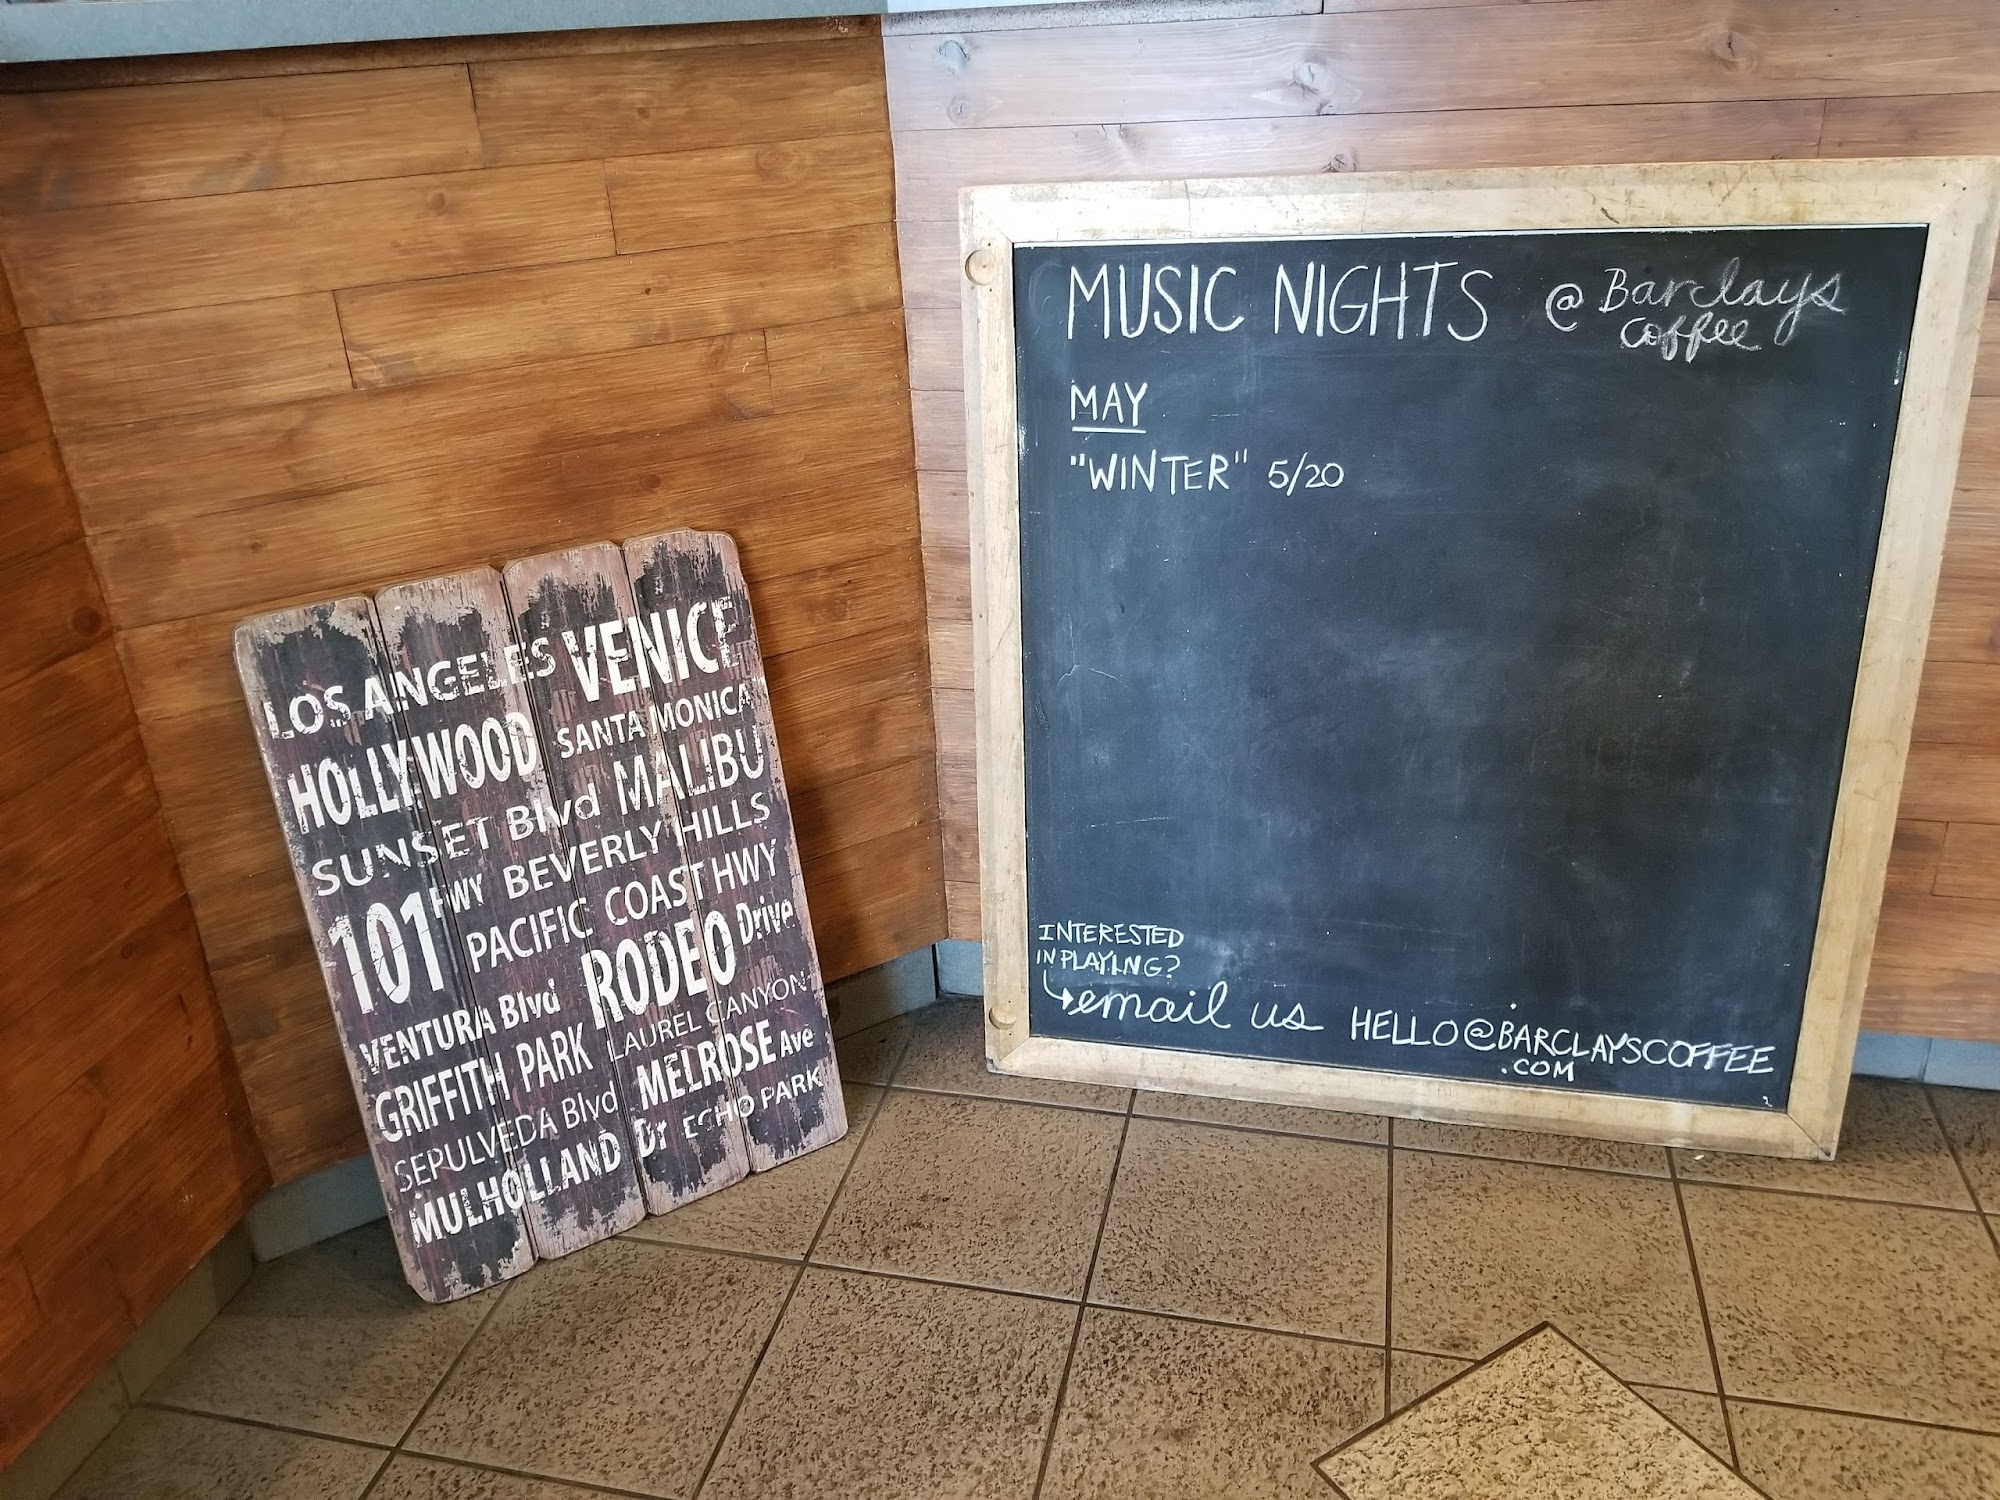 LOS ANGELES VENICE
HOLLYWOOD SANTA MONICA
SUNSET Blvd MALIBU
101 HWY BEVERLY HILLS
PACIFIC COAST HWY
VENTURA Blvd RODEO Drive
GRIFFITH PARK LAUREL CANYON
SEPULVEDA Blvd MELROSE Ave
MULHOLLAND Dr ECHO PARK
MUSIC NIGHTS @ Barclays
coffee
MAY
"WINTER" 5/20
INTERESTED
IN PLAYING?
email us HELLO@BARCLAYSCOFFEE
.COM